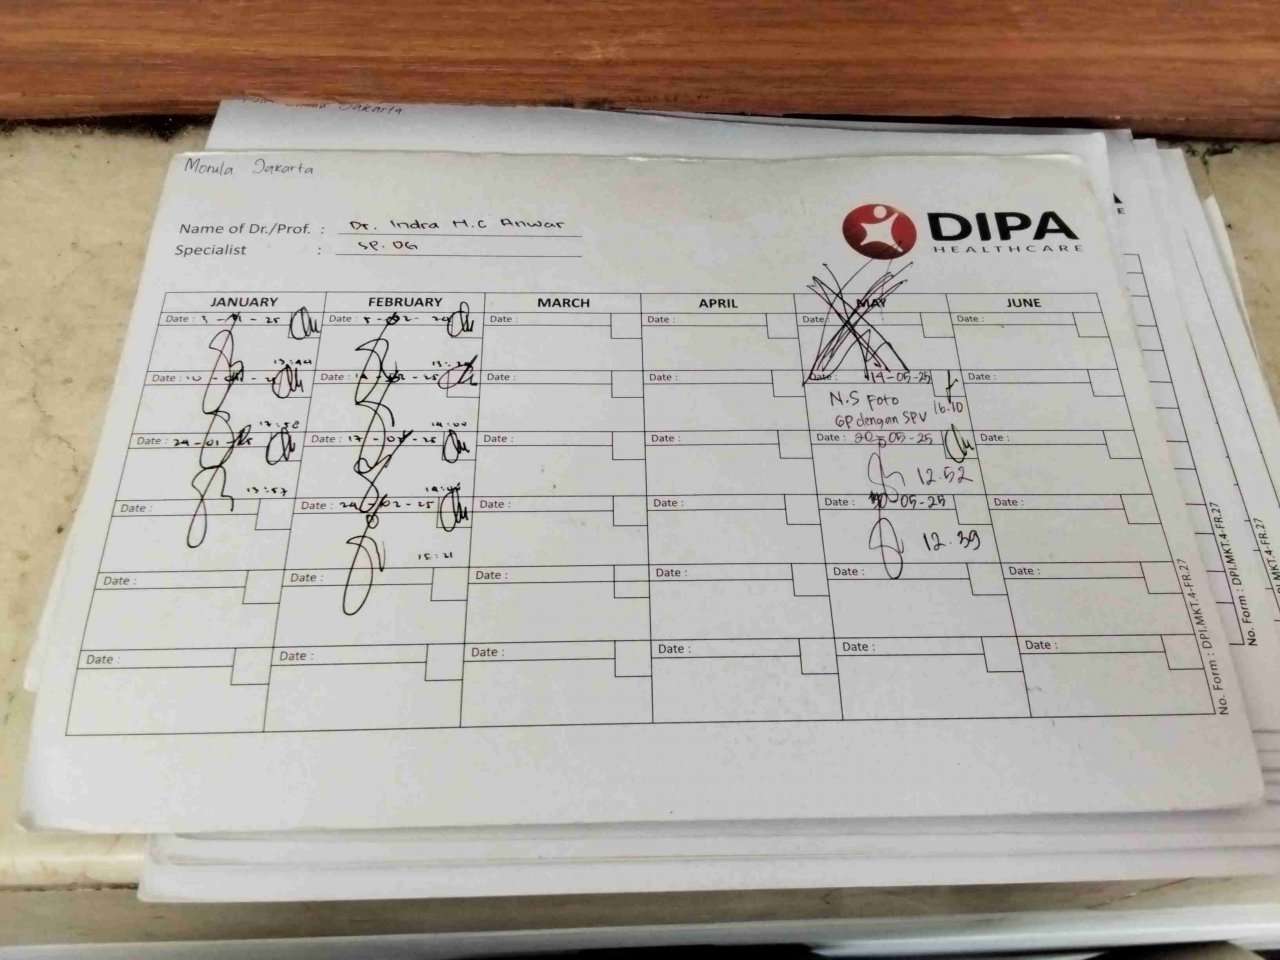 Jakarta
Morula Jakarta
Name of Dr./Prof. : Dr. Indra N.C Anwar
Specialist : SP. OG
DIPA
HEALTHCARE
JANUARY FEBRUARY MARCH APRIL MAY JUNE
Date : 3 - 01 - 25 Date : 5 - 02 - Date : Date : Date Date :
13:44
Date : Date : - 02 - 25 Date : Date : Date : 14-05-25 Date :
N.S Foto
GP dengan SPV 16.10
17:58 14:00
Date : 24 - 01 - 25 Date : 17 - 02 - 25 Date : Date : Date : 20-05-25 Date :
12.52
13:57
Date : Date : 24 - 02 - 25 Date : Date : Date : 05-25 Date :
12.39
15:21
Date : Date : Date : Date : Date : Date :
Date : Date : Date : Date : Date : Date :
No. Form : DPI.MKT.4-FR.27
No. Form : DPI.MKT.4-FR.27